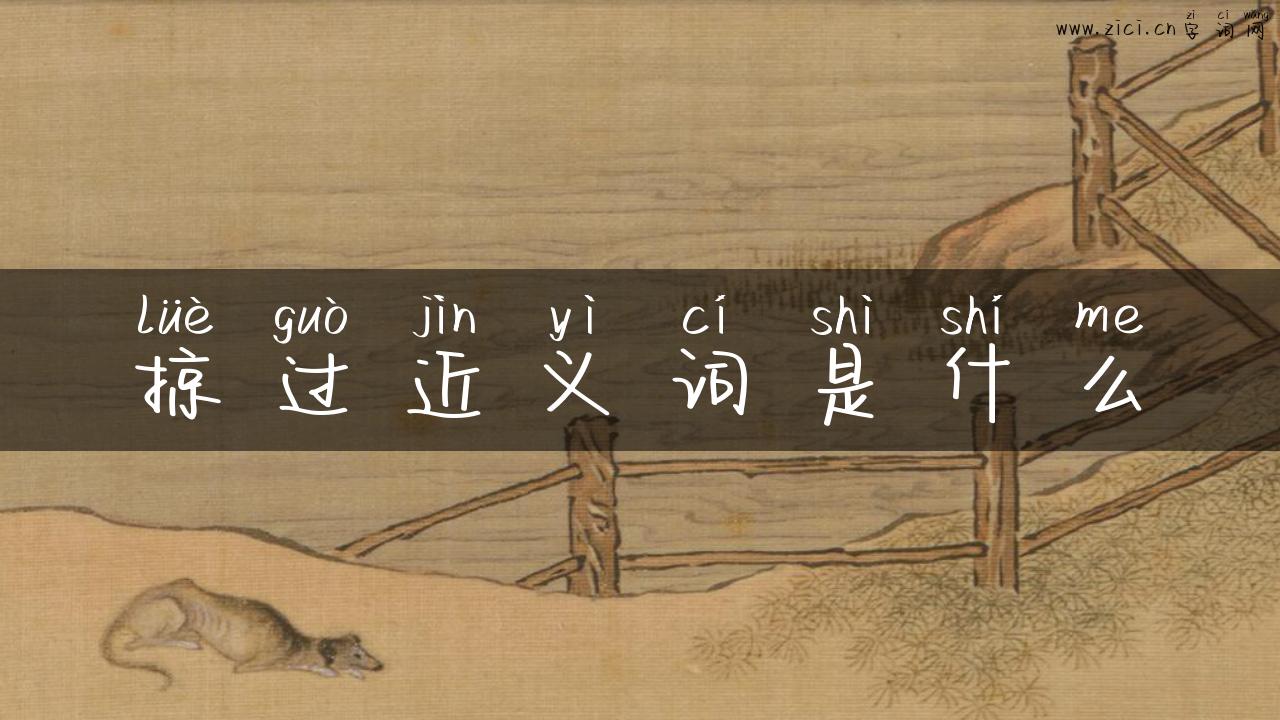 zì cí wǎng
www.zici.cn 字词网
lüè guò jìn yì cí shì shí me
掠过近义词是什么